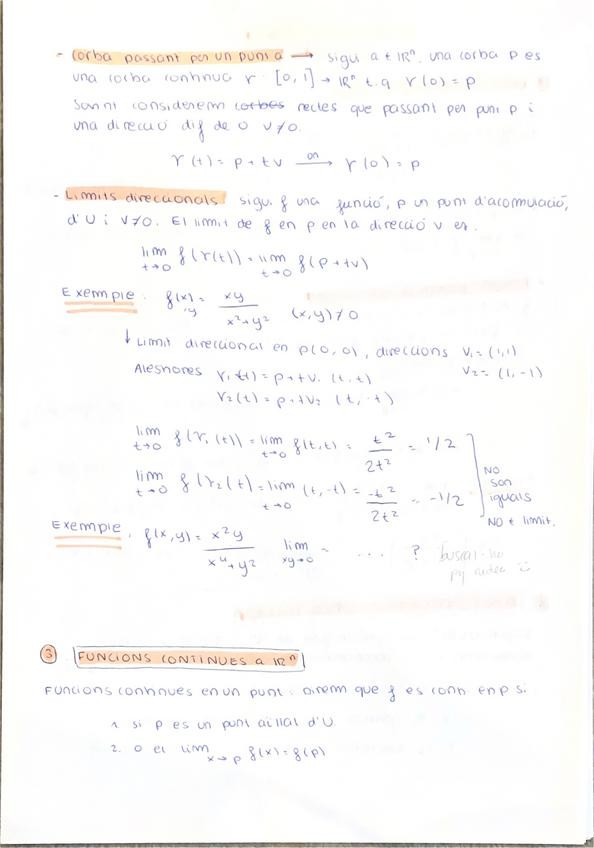 - Corba passant per un punt a → sigui a ∈ ℝⁿ. una corba p es
una corba continua γ : [0, 1] → ℝⁿ t.q γ(0) = p
Sovint considerem corbes rectes que passant per punt p i
una direcció dif de 0 v≠0.
γ(t) = p + tv ⟶ on γ(0) = p
- Limits direccionals sigui f una funció, p un punt d'acomulació,
d'U i v≠0. El limit de f en p en la direcció v es.
lim t→0 f(γ(t)) = lim t→0 f(p+tv)
Exemple : f(x,y) = xy / x²+y² (x,y)≠0
↓ Limit direccional en p(0,0), direccions v₁ = (1,1)
v₂ = (1,-1)
Aleshores γ₁(t) = p+tv₁ (t,t)
γ₂(t) = p+tv₂ (t,-t)
lim t→0 f(γ₁(t)) = lim t→0 f(t,t) = t² / 2t² = 1/2
lim t→0 f(γ₂(t) = lim t→0 (t,-t) = -t² / 2t² = -1/2
NO
son
iguals
NO ∃ limit.
Exemple . f(x,y) = x²y / x⁴+y² lim xy→0 = ... ?
buscar-ho
③ FUNCIONS CONTINUES a ℝⁿ
Funcions continues en un punt : Direm que f es cont en p si
1. si p es un punt aillat d'U
2. o el lim x→p f(x) = f(p)